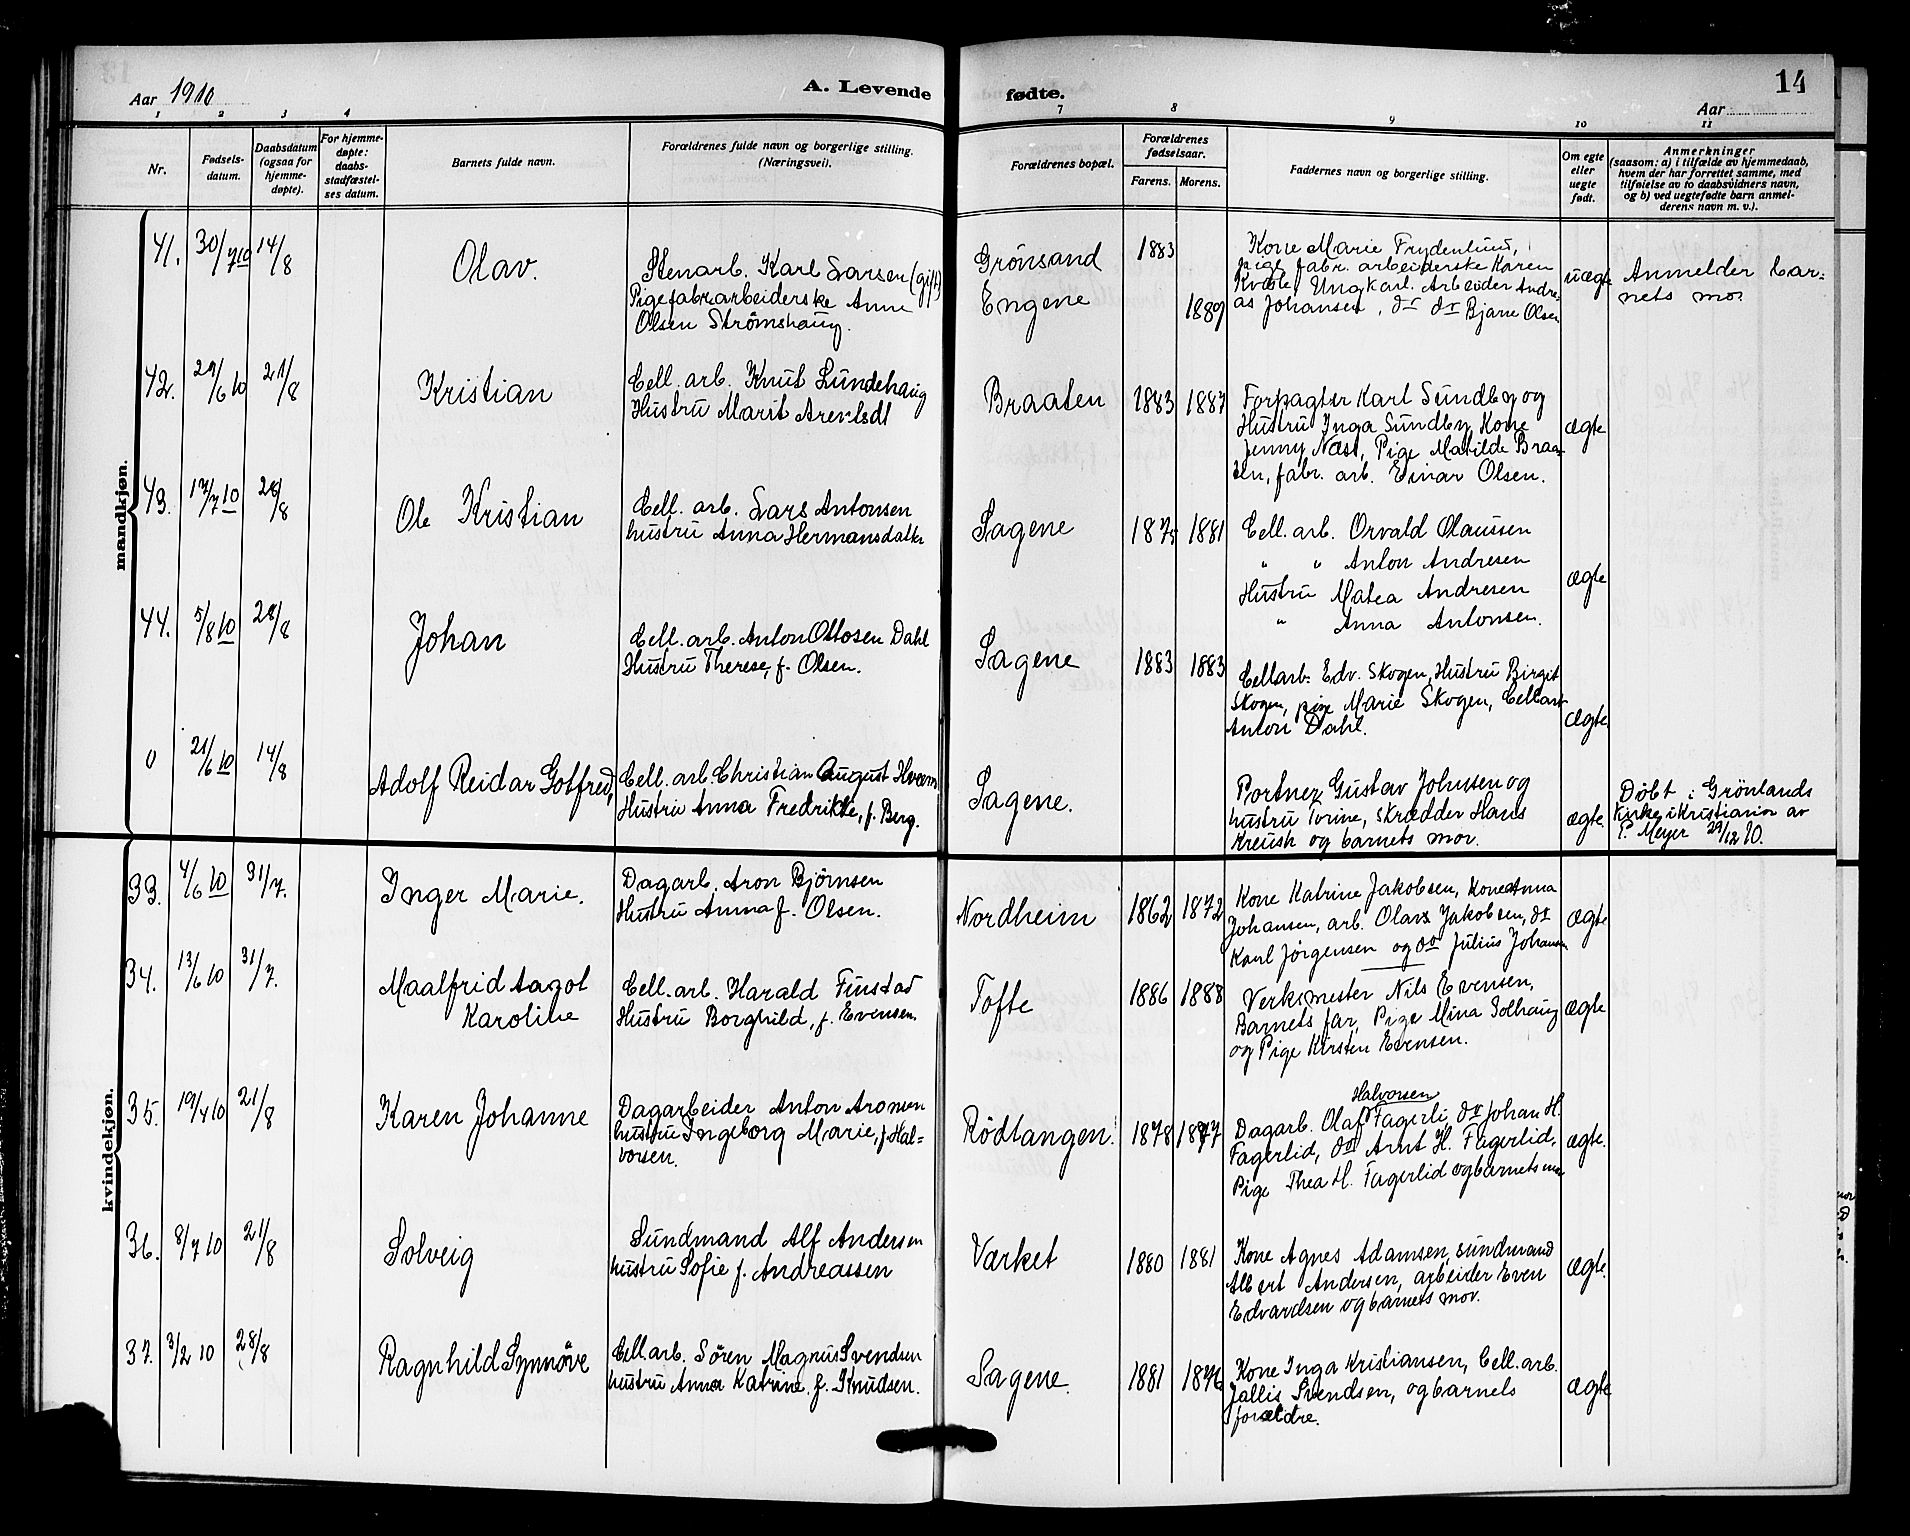 Aar 1910
A. Levende fødte.
14
Aar
1 2 3 4 7 8 9 10 11
Nr.
Fødsels-
datum.
Daabsdatum
(ogsaa for
hjemme-
døpte).
For hjemme-
døpte:
daabs-
stadfæstel-
ses datum.
Barnets fulde navn.
Forældrenes fulde navn og borgerlige stilling.
(Næringsvei).
Forældrenes bopæl.
Forældrenes
fødselsaar.
Farens. Morens.
Faddernes navn og borgerlige stilling.
Om egte
eller
uegte
født.
Anmerkninger
(saasom: a) i tilfælde av hjemmedaab,
hvem der har forrettet samme, med
tilføielse av to daabsvidners navn,
og b) ved uegtefødte barn anmel-
derens navn m. v.).
mandkjøn.
41. 30/7 10 14/8
Olav.
Stenarb. Karl Larsen (gift)
Pige fabr.arbeiderske Anne
Olsen Strømshaug.
Grönsand
Engene
1883
1889
Kone Marie Frydenlund,
pige fabr. arbeiderske Karen
Kvæle, Ungkarl. Arbeider Andre-
as Johansen, do do Bjarne Olsen
uægte
Anmelder bar-
nets mor
42. 29/6 10 21/8
Kristian
Cell. arb. Knut Lundehaug
Hustru Marit
Braaten
1883 1887
Forpagter Karl Sundby og
Hustru Inga Sundby, Kone
Jenny Næst, Pige Matilde Braa-
ten, fabr. arb. Einar Olsen.
ægte
43. 17/7 10 28/8
Ole Kristian
Cell. arb. Lars Antonsen
hustru Anna Hermansdatter
Sagene
1875 1881
Cell. arb. Orvald Olaussen
" " Anton Andresen
Hustru Matea Andresen
" Anna Antonsen.
ægte
44. 5/8 10 28/8
Johan
Cell. arb. Anton Ottosen Dahl
Hustru Therese, f. Olsen.
Sagene
1883 1883
Cellarb. Edv. Skogen, Hustru Birgit
Skogen, pige Marie Skogen, Cellarb
Anton Dahl.
ægte
0 21/6 10 14/8
Adolf Reidar Gotfred,
Cell. arb. Christian August Hveem
Hustru Anna Fredrikke, f. Berg.
Sagene.
Portner Gustav Johnsen og
hustru Torine, Skrædder Hans
Kreush og barnets mor.
ægte.
Döbt i Grönlands
Kirke i Kristiania av
P. Meyer 29/12 10.
kvindekjøn.
33. 4/6 10 31/7.
Inger Marie.
Dagarb. Aron Björnsen
Hustru Anna f. Olsen.
Nordheim
1862 1872
Kone Katrine Jakobsen, Kone Anna
Johansen, arb. Olavs Jakobsen, do
Karl Jörgensen og do Julius Johansen
ægte
34. 13/6 10 31/7.
Maalfrid Aagot
Karoline
Cell. arb. Harald Finstad
Hustru Borghild, f. Evensen.
Tofte
1886 1888
Verksmester Nils Evensen,
Barnets far, Pige Mina Solhaug
og Pige Kirsten Evensen.
ægte
35. 19/4 10 21/8
Karen Johanne
Dagarbeider Anton Aronsen
hustru Ingeborg Marie, f. Hal-
vorsen.
Rödtangen.
1878 1877
Halvorsen
Dagarb. Olaf Fagerli, do Johan H.
Fagerlid, do Arnt H. Fagerlid,
Pige Thea H. Fagerlid og barnets mor
ægte.
36. 8/7 10 21/8
Solveig
Sundmand Alf Andersen
hustru Sofie f. Andreassen
Værket
1880 1881
Kone Agnes Adamsen, sundmand
Albert Andersen, arbeider Even
Edvardsen og barnets mor.
ægte.
37. 3/2 10 28/8
Ragnhild Synnöve
Cell.arb. Sören Magnus Svendsen
hustru Anna Katrine, f. Knudsen.
Sagene.
1881 1876
Kone Inga Kristiansen, Cell. arb.
Jallis Svendsen, og barnets
forældre.
ægte